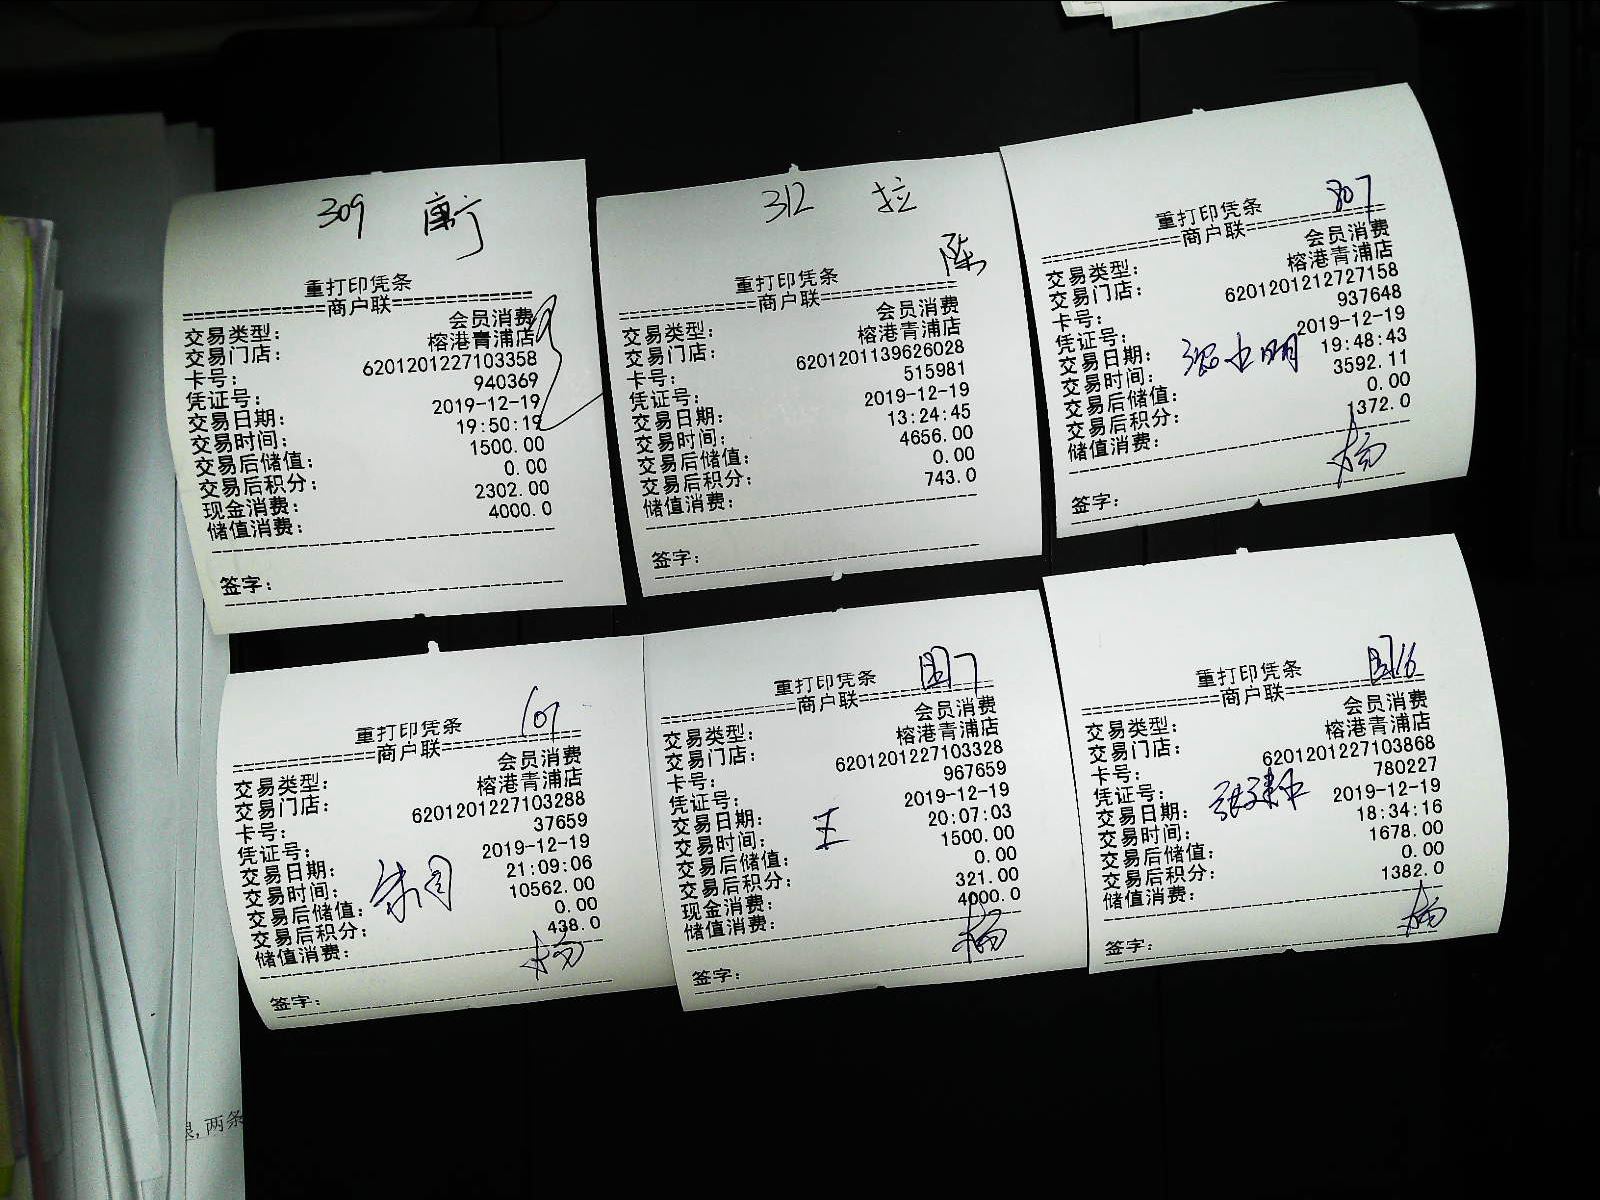 309
重打印凭条
=============商户联=============
交易类型: 会员消费
交易门店: 榕港青浦店
卡号: 6201201227103358
凭证号: 940369
交易日期: 2019-12-19
交易时间: 19:50:19
交易后储值: 1500.00
交易后积分: 0.00
现金消费: 2302.00
储值消费: 4000.0
签字:
312 拉
陈
重打印凭条
=============商户联=============
交易类型: 会员消费
交易门店: 榕港青浦店
卡号: 6201201139626028
凭证号: 515981
交易日期: 2019-12-19
交易时间: 13:24:45
交易后储值: 4656.00
交易后积分: 0.00
储值消费: 743.0
签字:
807
重打印凭条
=============商户联=============
交易类型: 会员消费
交易门店: 榕港青浦店
卡号: 6201201212727158
凭证号: 937648
交易日期: 2019-12-19
交易时间: 19:48:43
交易后储值: 3592.11
交易后积分: 0.00
储值消费: 1372.0
杨
签字:
重打印凭条
=============商户联=============
交易类型: 会员消费
交易门店: 榕港青浦店
卡号: 6201201227103288
凭证号: 37659
交易日期: 2019-12-19
交易时间: 21:09:06
交易后储值: 10562.00
交易后积分: 0.00
储值消费: 438.0
杨
签字:
重打印凭条
=============商户联=============
交易类型: 会员消费
交易门店: 榕港青浦店
卡号: 6201201227103328
凭证号: 967659
交易日期: 2019-12-19
交易时间: 20:07:03
王
交易后储值: 1500.00
交易后积分: 0.00
现金消费: 321.00
储值消费: 4000.0
杨
签字:
重打印凭条
=============商户联=============
交易类型: 会员消费
交易门店: 榕港青浦店
卡号: 6201201227103868
凭证号: 780227
交易日期: 2019-12-19
交易时间: 18:34:16
交易后储值: 1678.00
交易后积分: 0.00
储值消费: 1382.0
杨
签字:
两条